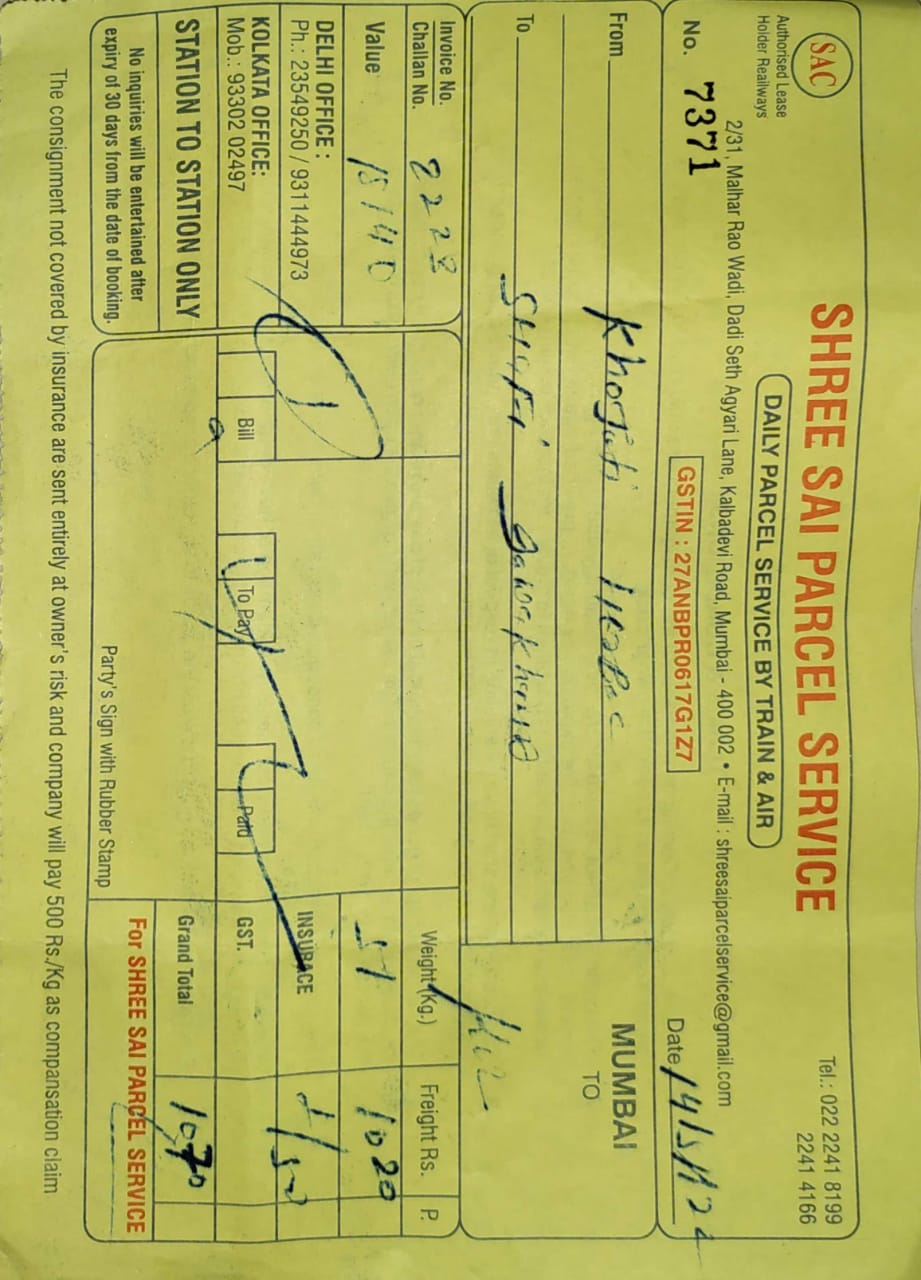 SHREE SAI PARCEL SERVICE
SAC
Tel.: 022 2241 8199
2241 4166
Authorised Lease
Holder Reailways
DAILY PARCEL SERVICE BY TRAIN & AIR
2/31, Malhar Rao Wadi, Dadi Seth Agyari Lane, Kalbadevi Road, Mumbai - 400 002 • E-mail : shreesaiparcelservice@gmail.com
No. 7371
GSTIN : 27ANBPR0617G1Z7
Date
From
MUMBAI
TO
To
Invoice No.
Challan No. 2228
Weight (Kg.) Freight Rs. P.
Value 15140
51 1020
DELHI OFFICE :
Ph.: 23549250 / 9311444973
INSURACE
KOLKATA OFFICE:
Mob.: 93302 02497
Bill To Pay Paid
GST.
STATION TO STATION ONLY
Grand Total 1070
No inquiries will be entertained after
expiry of 30 days from the date of booking.
Party's Sign with Rubber Stamp
For SHREE SAI PARCEL SERVICE
The consignment not covered by insurance are sent entirely at owner's risk and company will pay 500 Rs./Kg as compansation claim